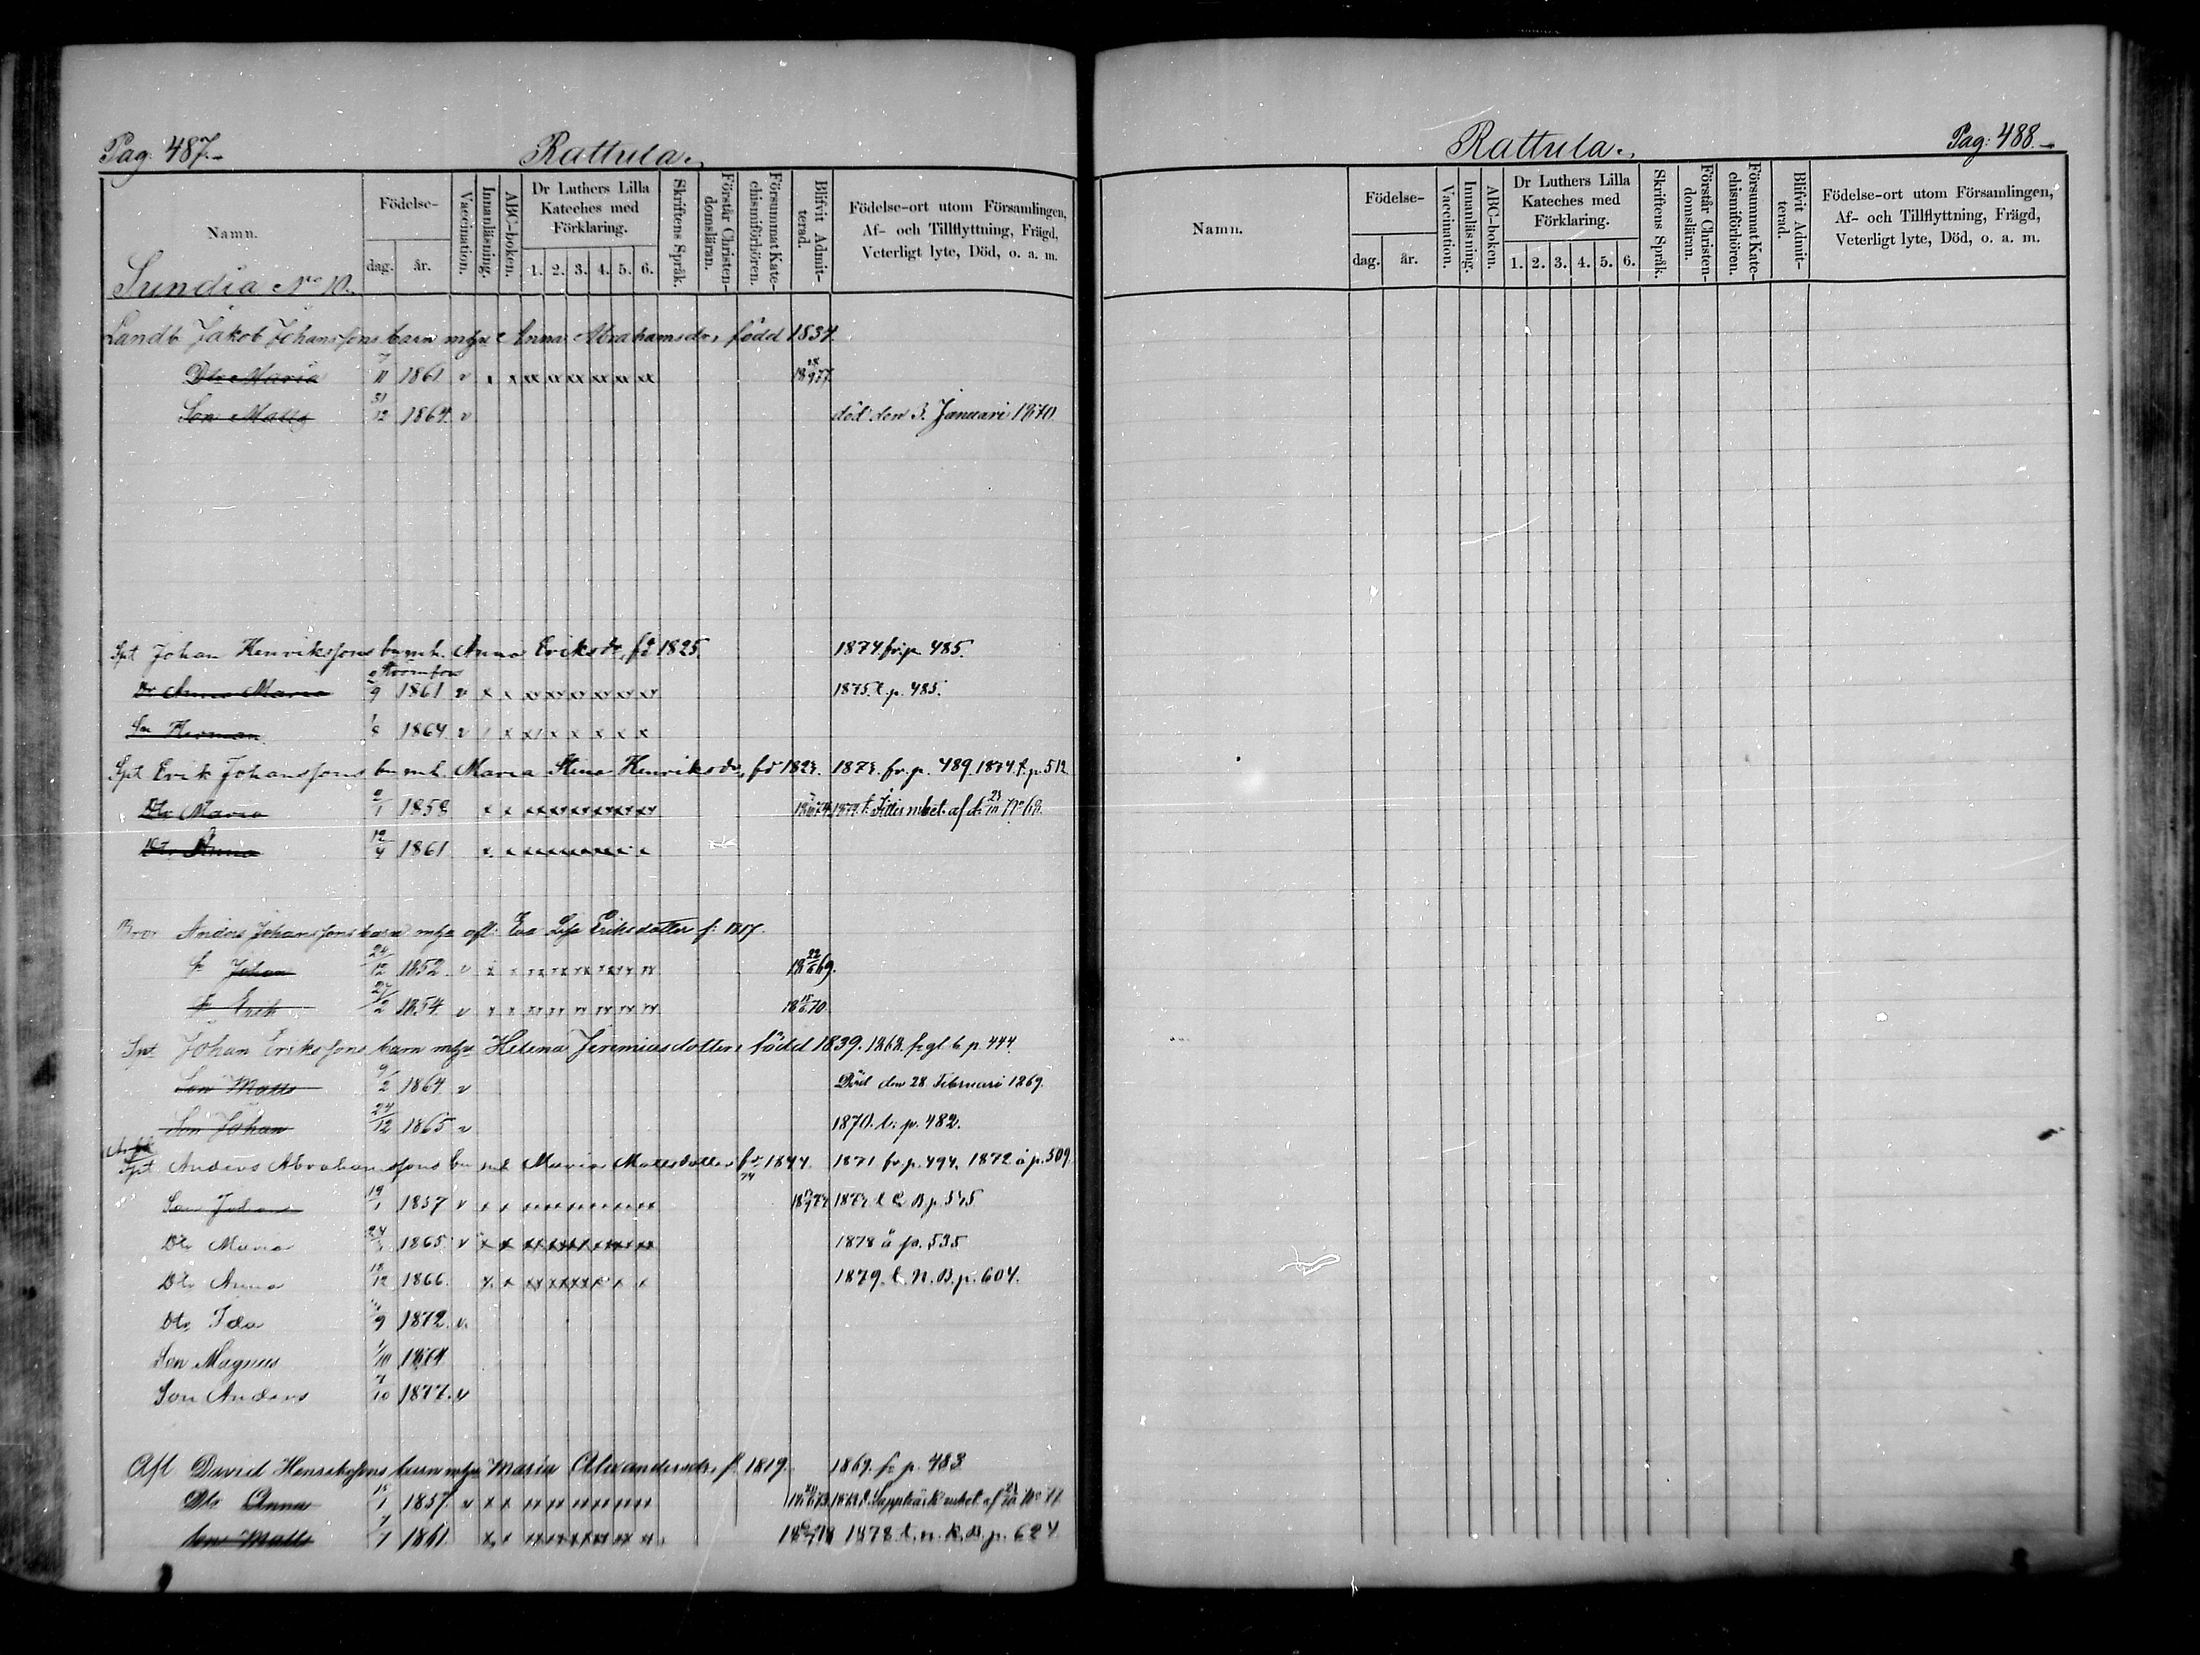 Pag. 487.
Rattula.
Namn.
Födelse-
dag.
år.
Vaccination.
Innanläsning.
ABC-boken.
Dr Luthers Lilla Kateches med Förklaring.
1. 2. 3. 4. 5. 6.
Skriftens Språk.
Förstår Christendomsläran.
Försummat Katechismiförhören.
Blifvit Admitterad.
Födelse-ort utom Församlingen,
Af- och Tillflyttning, Frägd,
Veterligt lyte, Död, o. a. m.
Sundia No 10.
Landb. Jakob Johanssons barn m hu Anna Abrahamsdr, född 1834.
Dtr Maria 7/11 1861 v x x xx xx xx xx xx xx
Son Matts 31/12 1864 v död den 3. Januari 1870.
Spt Johan Henrikssons bn m h. Anna Eriksdr, fd 1825. 1874 fr. p. 485.
Dr Anna Maria 2/9 1861 v x x xx xx xx xx xx xx 1875. t. p. 485.
Son Herman 1/8 1864 v / x x/ x x x x x
Spt Erik Johanssons bn m h. Maria Stina Henriksdr, fd 1823. 1873. fr. p. 489. 1874. t. p. 512
Dtr Maria 2/1 1858 x x af d. 23/10 No 68.
Dtr Anna 12/4 1861
Bror Anders Johanssons barn m hu afl. Eva Lisa Eriksdotter f. 1817.
Sn Johan 24/12 1852 v x x xx xx xx xx xx xx 18 22/6 69.
Sn Erik 27/2 1854 v x x xx xx xx xx xx xx
Spt Johan Erikssons barn m hu Helena Jeremiasdotter, född 1839. 1868. fr gl b p. 444.
Son Matts 9/2 1864 v Död den 28 Februari 1869.
Son Johan 24/12 1865 v 1870. t. p. 482.
Spt Anders Abrahamssons bn m h Maria Mattsdotter fd 1844. 1871 fr. p. 494. 1872 å p. 509.
Son Johan 19/1 1857 v x x xx xx xx xx xx xx B. p. 545
Dtr Maria 1865 v x x xx xx xx xx xx xx 1878 å p. 535
Dtr Anna 18/12 1866. x x xx xx xx x x x 1879. t. N. B. p. 604.
Dtr Ida 1872. v.
Son Magnus 1/10
Son Anders 7/10 1877. v
Afl David Henrikssons barn m hu Maria Alexandersdr. f. 1819. 1869. fr p. 483.
Dtr Anna 15/1 1857. v x x xx xx xx xx xx xx
Son Matts 1861. x x xx xx xx xx xx xx 1878. t. n. k. B. p. 624
Rattula.
Pag: 488.
Namn.
Födelse-
dag.
år.
Vaccination.
Innanläsning.
ABC-boken.
Dr Luthers Lilla Kateches med Förklaring.
1. 2. 3. 4. 5. 6.
Skriftens Språk.
Förstår Christendomsläran.
Försummat Katechismiförhören.
Blifvit Admitterad.
Födelse-ort utom Församlingen,
Af- och Tillflyttning, Frägd,
Veterligt lyte, Död, o. a. m.